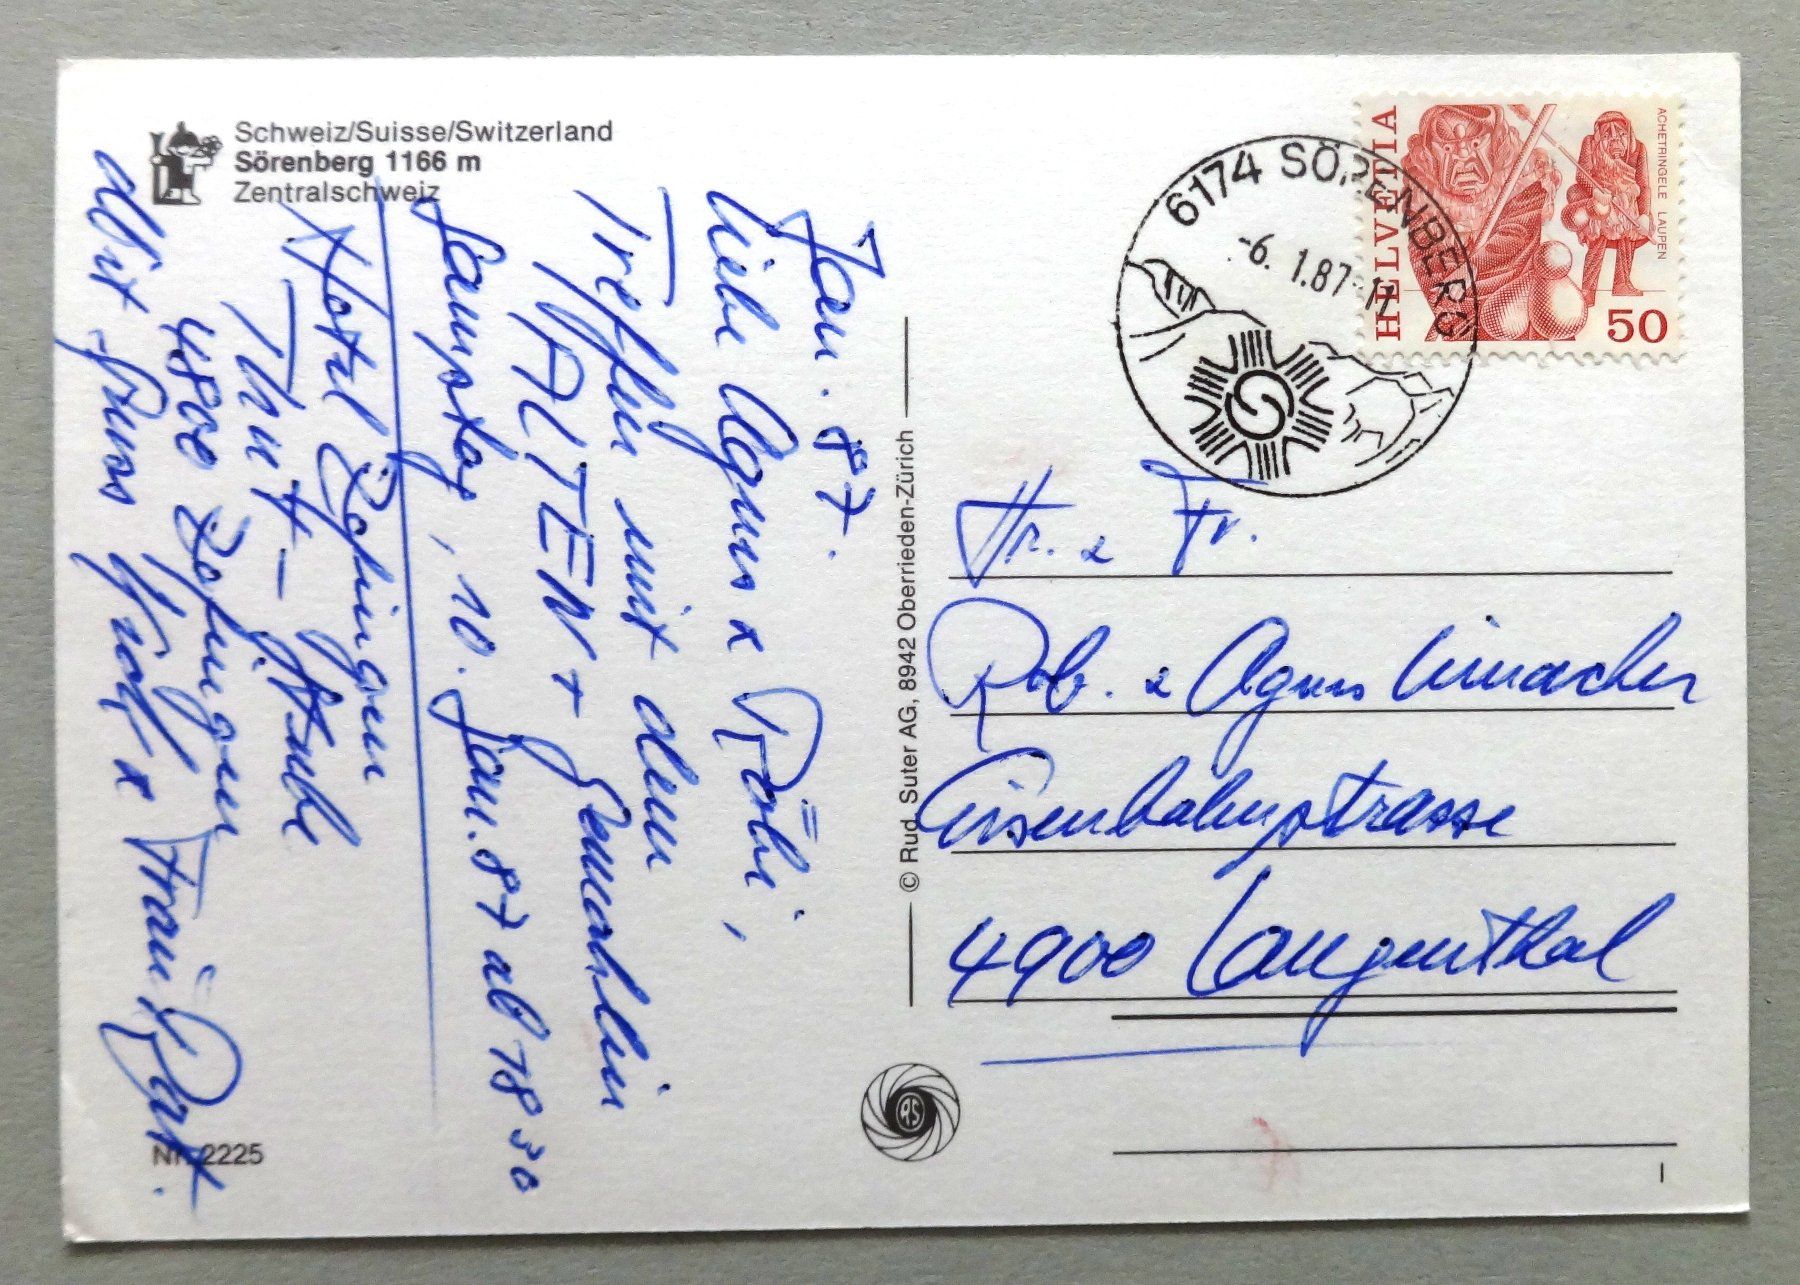 Schweiz/Suisse/Switzerland
Sörenberg 1166 m
Zentralschweiz
Jan. 87.
Liebe Agnes & Röbi,
Treffen mit den
ALTEN + Gemahlin
Samstag, 10. Jan. 87 ab 18 30
Hotel Zofingen
Thut-Stube
4800 Zofingen
Mit Gruss
Nr. 2225
© Rud. Suter AG, 8942 Oberrieden-Zürich
RS
6174 SÖRENBERG
-6. 1.87-11
HELVETIA
ACHETRINGELE LAUPEN
50
Hr. & Fr.
Rob. & Agnes
Eisenbahnstrasse
4900 Langenthal
I